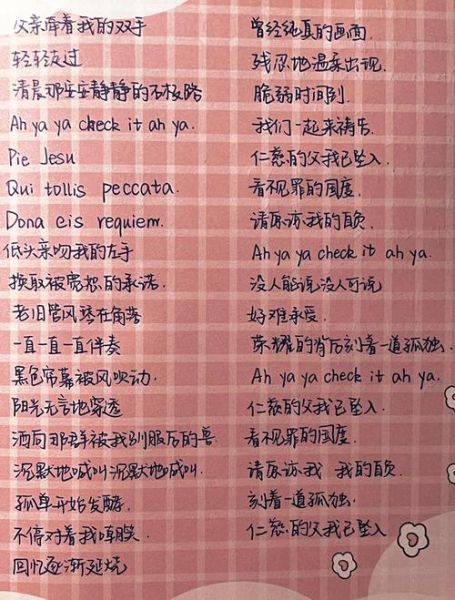 父亲牵着我的双手
轻轻走过
清晨那安安静静的石板路
Ah ya ya check it ah ya.
Pie Jesu
Qui tollis peccata.
Dona eis requiem.
低头亲吻我的左手
换取被宽恕的承诺
老旧管风琴在角落
一直一直一直伴奏
黑色帘幕被风吹动.
阳光无言地穿透
洒向那群被我驯服后的兽
沉默地喊叫沉默地喊叫.
孤单开始发酵.
不停对着我嘲笑.
回忆逐渐延烧
曾经纯真的画面.
残忍地温柔出现.
脆弱时间到.
我们一起来祷告.
仁慈的父我已坠入.
看不见罪的国度.
请原谅我的自负.
Ah ya ya check it ah ya.
没人能说没人可说
好难承受.
荣耀的背后刻着一道孤独.
Ah ya ya check it ah ya.
仁慈的父我已坠入.
看不见罪的国度.
请原谅我 我的自负.
刻着一道孤独.
仁慈的父我已坠入